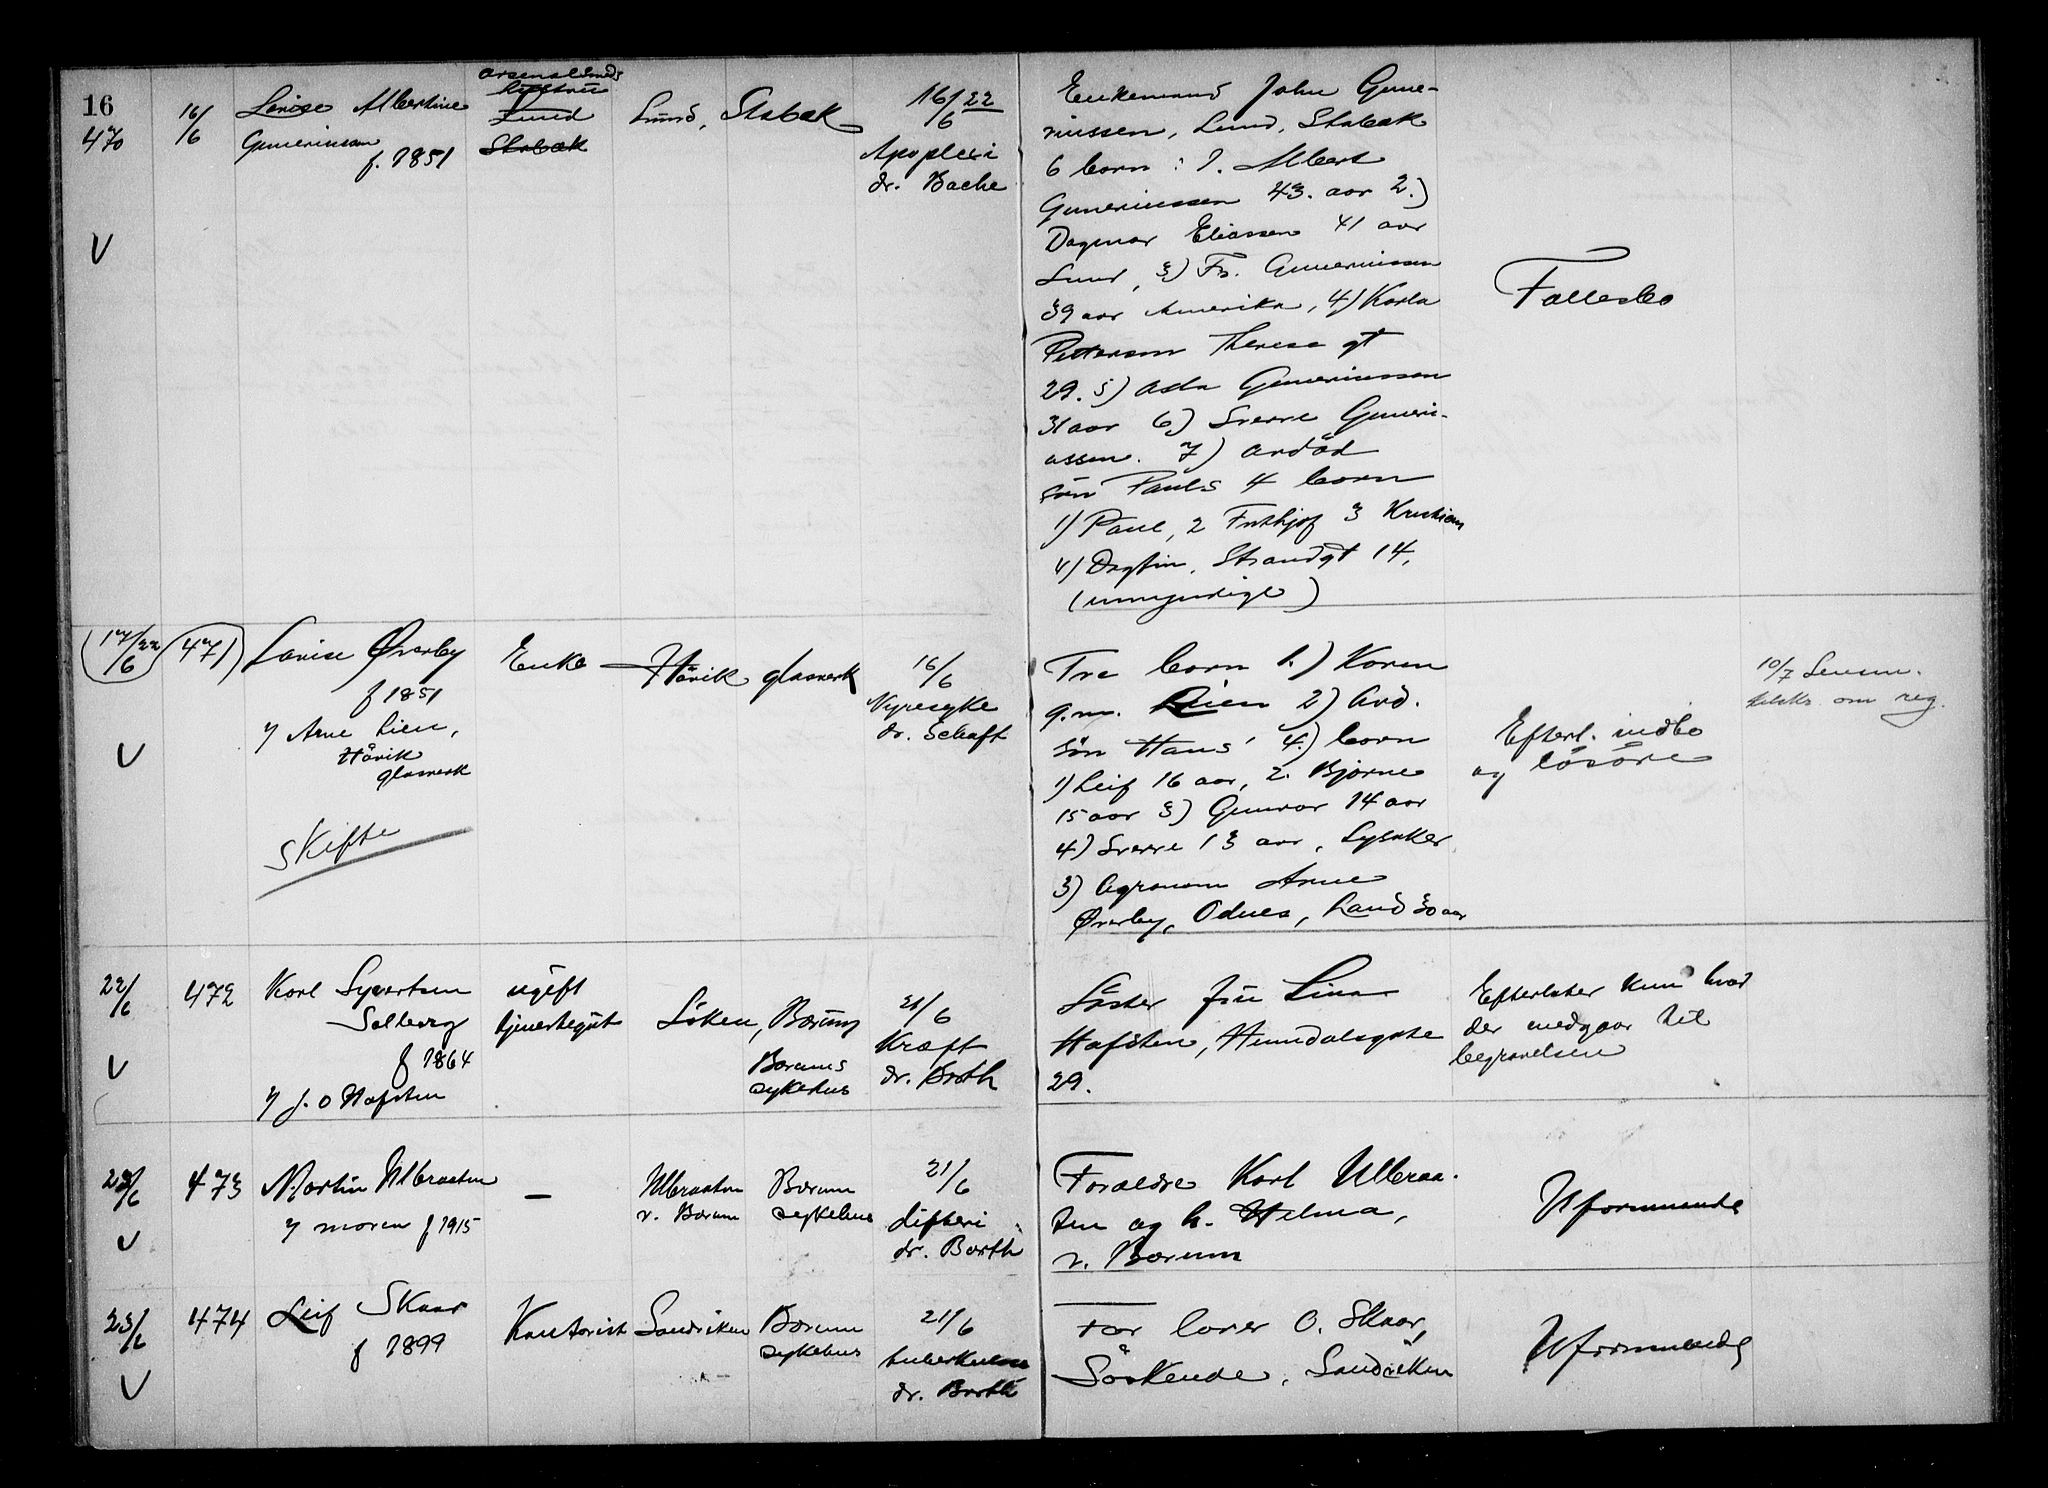 16
470
16/6
Lovise Albertine
Gunerinssen
f. 1851
Arsenalsmeds
hustru
Lund
Stabæk
Lund, Stabæk
16/6 22
Apoplexi
dr. Backe
Enkemand John Gune-
riussen, Lund, Stabæk
6 born: 1. Albert
Guneriussen 43. aar 2.)
Dagmar Eliassen 41 aar
Lund, 3) Fr. Guneriussen
39 aar Amerika, 4) Karla
Petterson Theresa gt
29. 5) Asta Guneriussen
31 aar 6) Sverre Guneri-
ussen. 7) avdød
søn Pauls 4 born
1) Paul, 2 Frithjof 3 Kristian
4) Dagfin, Strandgt 14,
(umyndige)
Fællesbo
V
17/6 22
471
Lovise Øverby
f 1851
v/ Arne Lien,
Høvik
glasverk
Skifte
Enke
Høvik glasverk
16/6
Nyresyke
dr. Schaft
Tre born 1.) Karen
g.m. Lien 2) Avd.
søn Hans' 4.) born
1) Leif 16 aar, 2. Bjarne
15 aar 3) Gunvor 14 aar
4) Sverre 13 aar, Lysaker
3) Agronom Arne
Øverby, Odnes, Land 30 aar
Efterl. indbo
og løsøre
10/7 Lensm.
tilskr. om reg.
V
22/6
472
Karl Syvertsen
Solberg
f 1864
v/ J. O Hafsten
ugift
tjenestegut
Løken, Bærum
Bærums
sykehus
21/6
Kræft
dr. Barth
Søster fru Lina
Hafsten, Heimdalsgate
29.
Efterlater kun hvad
der medgaar til
begravelsen
V
23/6
473
Martin Ulbraaten
v/ moren f 1915
—
Ulbraaten
v. Bærum
Bærum
sykehus
21/6
difteri
dr. Barth
Forældre Karl Ulbraa-
ten og h. Helma,
v. Bærum
Uformuende
V
23/6
474
Leif Skaar
f 1899
Kontorist
Sandviken
Bærum
sykehus
21/6
tuberkulose
dr. Barth
Far lærer O. Skaar,
Søskende, Sandviken
Uformuende
V